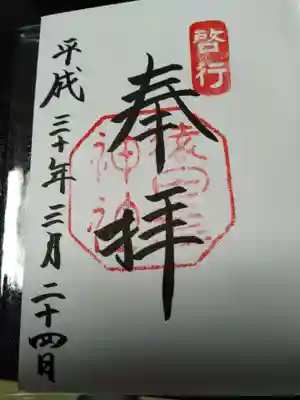 啓行
奉拝
猿田彦
神社
平成三十年三月二十四日